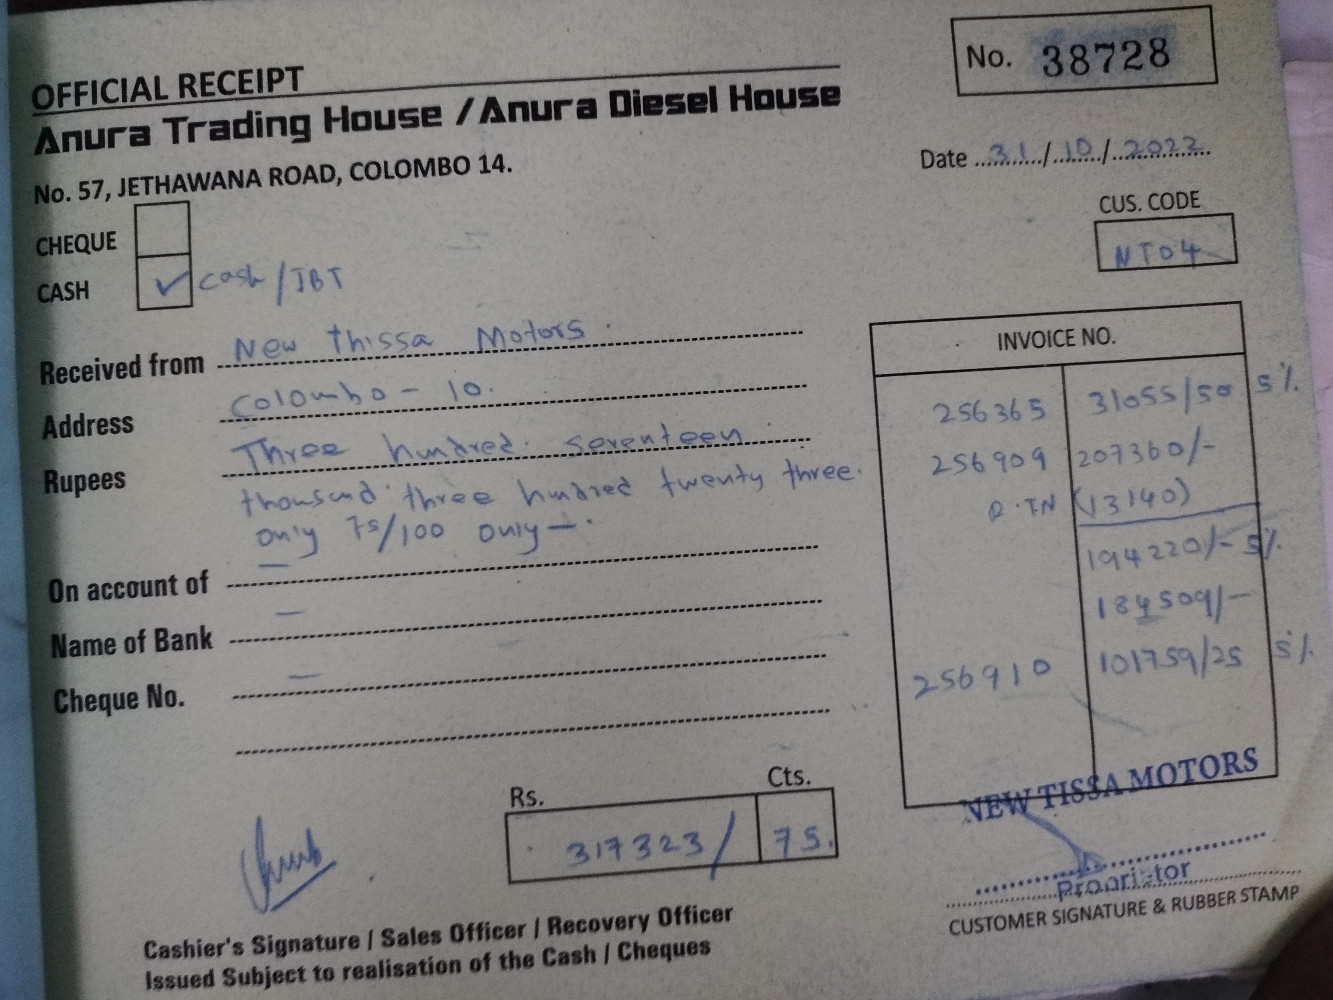 OFFICIAL RECEIPT
Anura Trading House / Anura Diesel House
No. 57, JETHAWANA ROAD, COLOMBO 14.
No. 38728
Date 31/10/2022
CUS. CODE
NT04
CHEQUE
CASH ✓ cash/IBT
Received from New Thissa Motors
Address Colombo - 10.
Rupees Three hundred seventeen
thousand three hundred twenty three
only 75/100 only
On account of —
Name of Bank —
Cheque No. —
INVOICE NO.
256365 31055/50 5%
256909 207360/-
R.TN (13140)
194220/- 5%
184509/-
256910 101759/25 5%
Rs. Cts.
317323/ 75.
NEW TISSA MOTORS
Proprietor
CUSTOMER SIGNATURE & RUBBER STAMP
Cashier's Signature / Sales Officer / Recovery Officer
Issued Subject to realisation of the Cash / Cheques